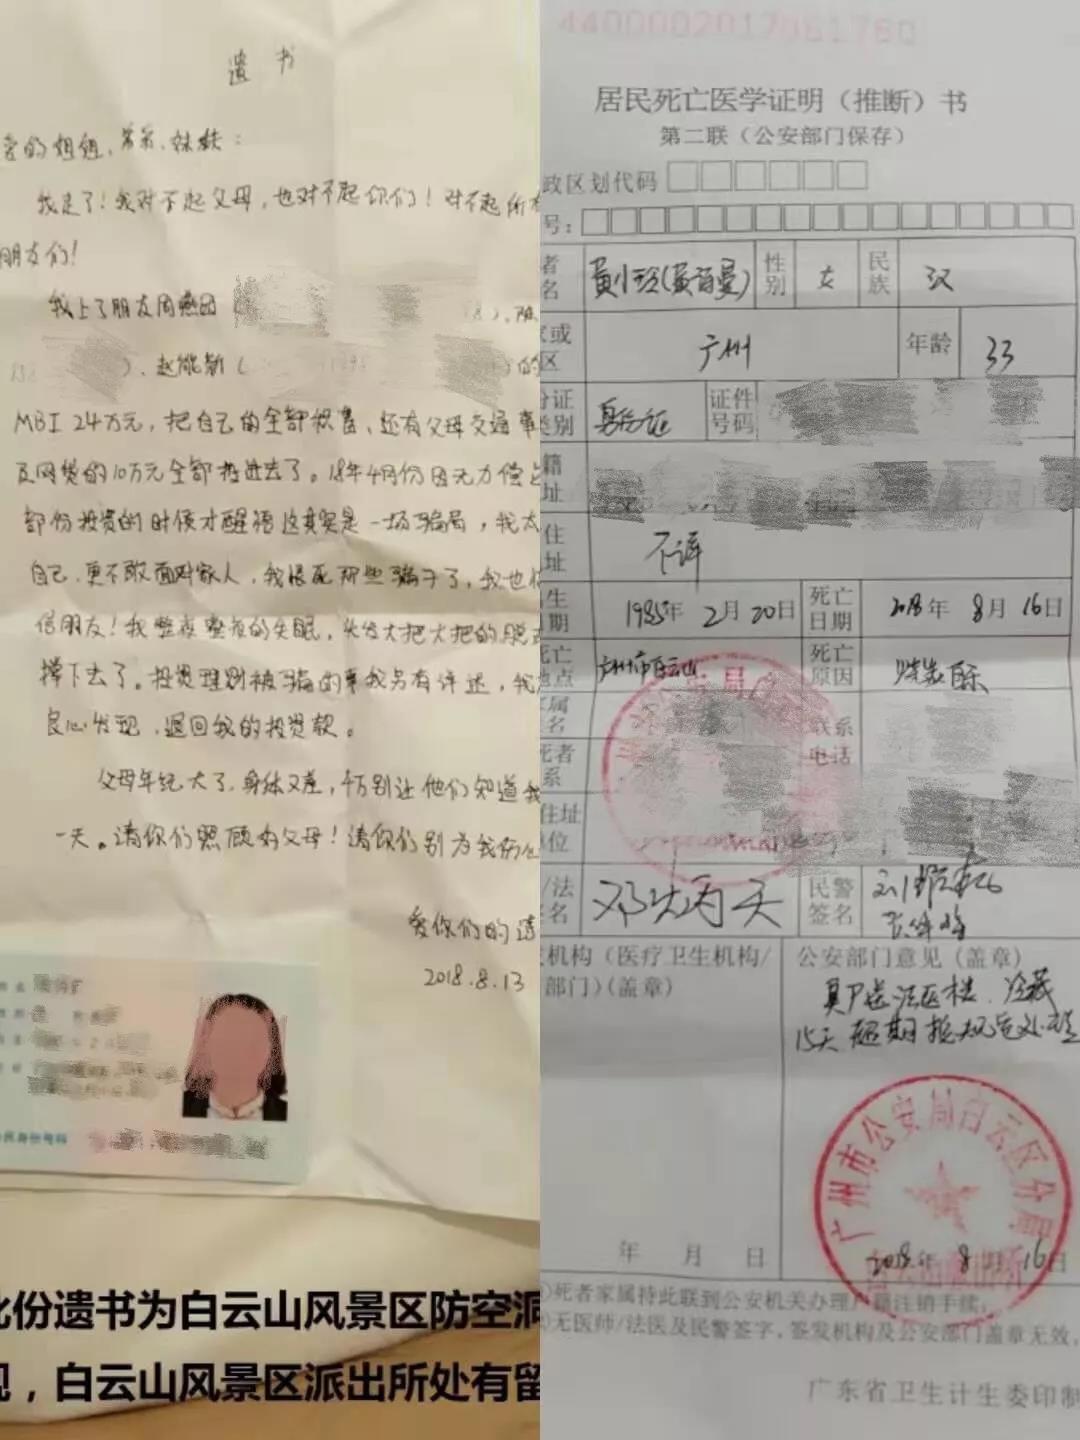 遗书
爱的姐姐、弟弟、妹妹：
我走了！我对不起父母，也对不起你们！对不起所有
朋友们！
我上了朋友周燕
）、赵能新（
MBI 24万元，把自己的全部积蓄、还有父母交通事
及网贷的10万元全部投进去了。18年4月份因无力偿还
部份投资的时候才醒悟这其实是一场骗局，我太
自己，更不敢面对家人，我恨死那些骗子了，我也
信朋友！我整夜整夜的失眠，头发大把大把的脱
撑下去了。投资理财被骗的事我另有详述，我
良心发现，退回我的投资款。
父母年纪大了，身体又差，千万别让他们知道我
一天。请你们照顾好父母！请你们别为我伤心
爱你们的
2018.8.13
此份遗书为白云山风景区防空洞
现，白云山风景区派出所处有留
4400002017061760
居民死亡医学证明（推断）书
第二联（公安部门保存）
政区划代码
号：
者名 黄小玲(黄 曼) 性别 女 民族 汉
或区 广州 年龄 33
份证类别 身份证 证件号码
籍址
住址 不详
生日期 1985年2月20日 死亡日期 2018年8月16日
死亡地点 广州市白云山 死亡原因 烧炭自杀
属名 联系电话
死者系
住址单位
/法签名 民警签名
机构（医疗卫生机构/
部门）(盖章) 公安部门意见 (盖章)
15天 超期按规定处理
广州市公安局白云区分局
年 月 日 2018年8月16日
①死者家属持此联到公安机关办理户籍注销手续；
②无医师/法医及民警签字，签发机构及公安部门盖章无效，
广东省卫生计生委印制